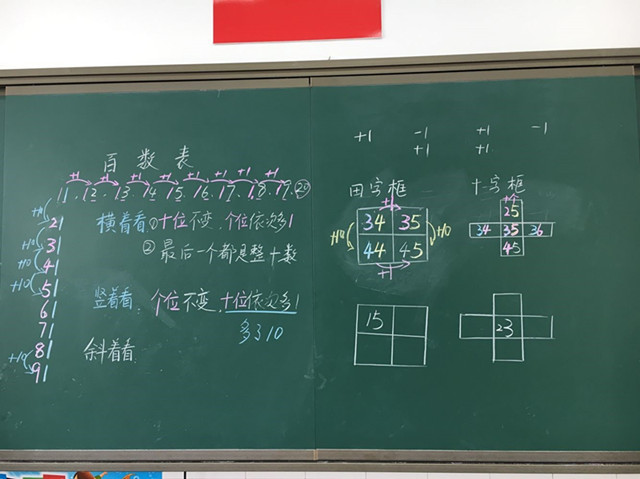 百数表
+1 +1 +1 +1 +1 +1 +1 +1
11. 12. 13. 14. 15. 16. 17. 18. 19. 20
+10 21
+10 31
+10 41
+10 51
61
71
+10 81
91
横着看①十位不变、个位依次多1
②最后一个都是整十数
竖着看、个位不变、十位依次多1
多了10
斜着看
+1 -1 +1 -1
+1 +1
田字框
+1
34 35
+10 +10
44 45
+1
15
十字框
+1
25
34 35 36
45
23